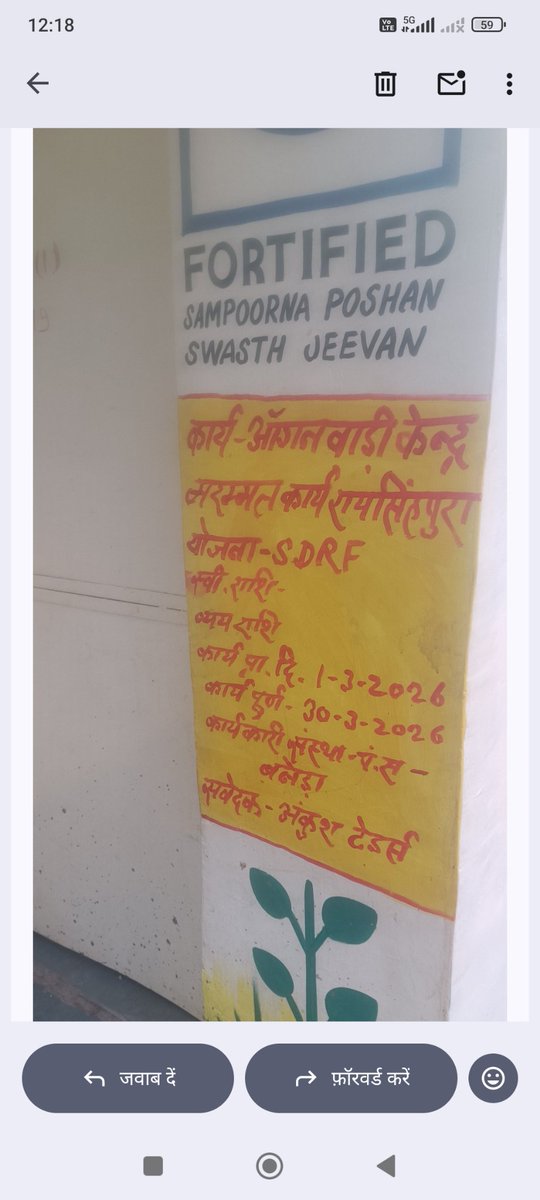 12:18
Vo LTE 5G 59
FORTIFIED
SAMPOORNA POSHAN
SWASTH JEEVAN
कार्य-ऑगनवाडी केन्द्र
मरम्मत कार्य रायसिंहपुरा
योजना-SDRF
स्वी. राशि-
व्यय राशि
कार्य प्रा. दि. 1-3-2026
कार्य पूर्ण- 30-3-2026
कार्यकारी संस्था-पं.स-
संवेदक- अंकुश ट्रेडर्स
जवाब दें
फ़ॉरवर्ड करें